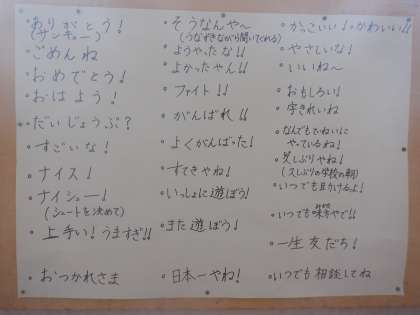 ・ありがとう！
(サンキュー)
・ごめんね
・おめでとう！
・おはよう！
・だいじょうぶ？
・すごいな！
・ナイス！
・ナイシュー！
(シュートを決めて)
・上手い！うますぎ!!
・おつかれさま
・そうなんや〜
(うなずきながら聞いてくれる)
・ようやったな!!
・よかったやん!!
・ファイト!!
・がんばれ!!
・よくがんばった！
・すてきやね！
・いっしょに遊ぼう！
・また遊ぼう！
・日本一やね！
・かっこいい！・かわいい!!
・やさしいな！
・いいね〜
・おもしろい！
・字きれいね
・なんでもていねいに
やっているね！
・久しぶりやね！
(久しぶりの学校の朝)
・いつでも助けるよ！
・いつでも味方やで!!
みかた
・一生友だち！
・いつでも相談してね